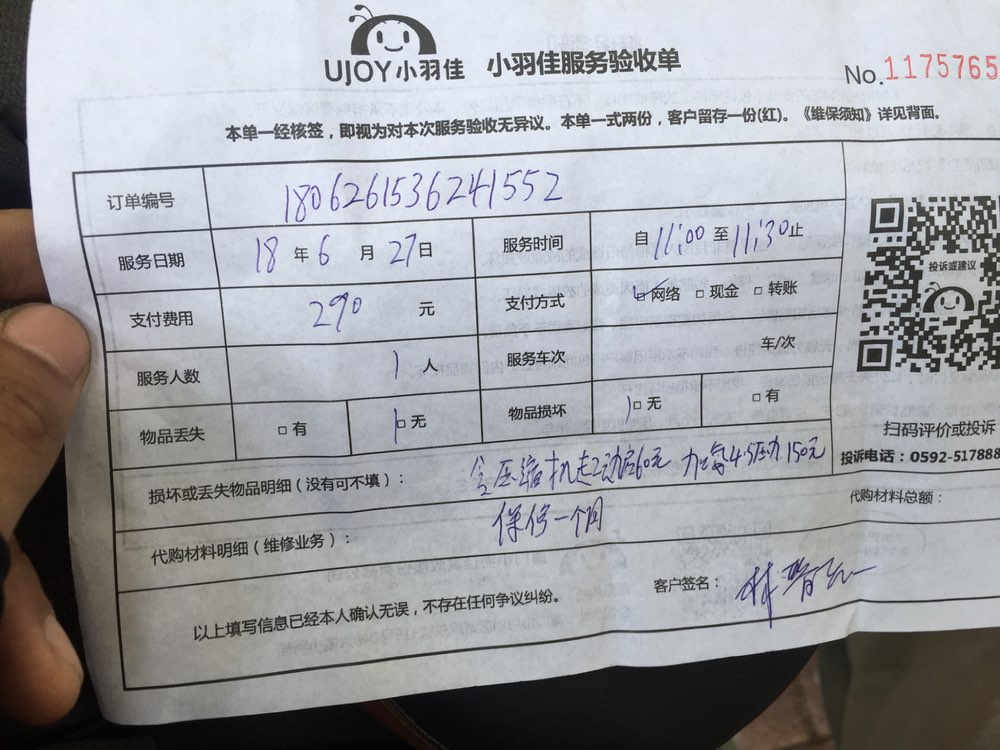 UJOY小羽佳 小羽佳服务验收单
No.1175765
本单一经核签，即视为对本次服务验收无异议。本单一式两份，客户留存一份(红)。《维保须知》详见背面。
订单编号 180626153624 1552
服务日期 18 年 6 月 27 日 服务时间 自 11:00 至 11:30 止
支付费用 290 元 支付方式 □网络 □现金 □转账
服务人数 1 人 服务车次 车/次
物品丢失 □有 □无 物品损坏 □无 □有
投诉或建议
扫码评价或投诉
投诉电话：0592-517888
损坏或丢失物品明细（没有可不填）： 压缩机起动 60元 加 4.5压力 150元
代购材料总额：
代购材料明细（维修业务）： 保修一个月
以上填写信息已经本人确认无误，不存在任何争议纠纷。 客户签名：